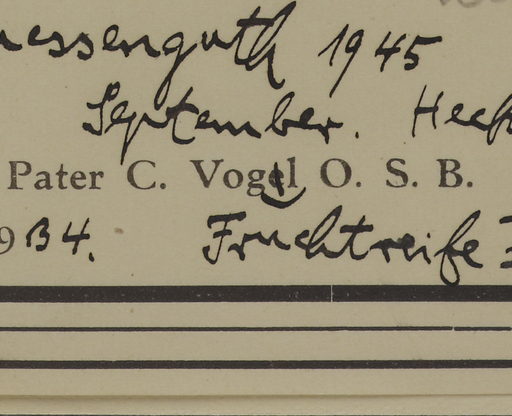 uessenguth 1945
September. Heck
Pater C. Vogel O. S. B.
934. Fruchtreife